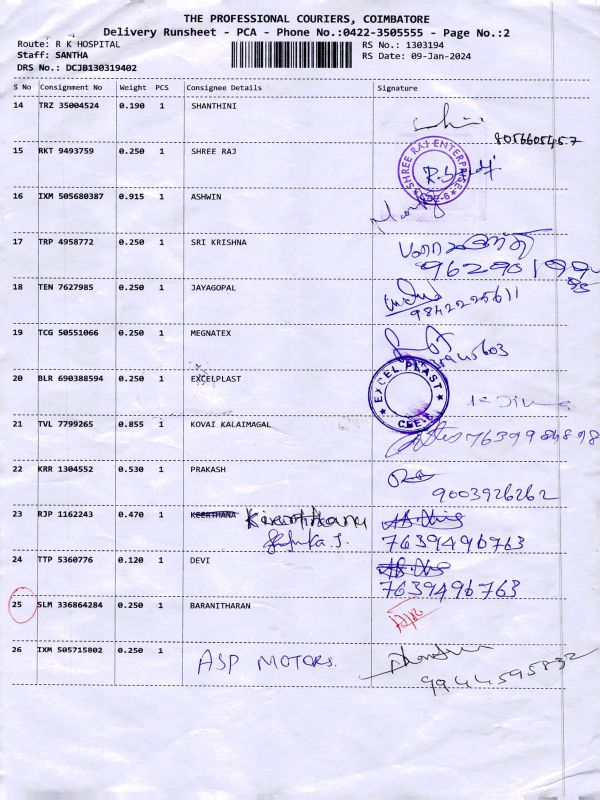 THE PROFESSIONAL COURIERS, COIMBATORE
Delivery Runsheet - PCA - Phone No.:0422-3505555 - Page No.:2
Route: R K HOSPITAL RS No.: 1303194
Staff: SANTHA RS Date: 09-Jan-2024
DRS No.: DCJB130319402
S No Consignment No Weight PCS Consignee Details Signature
14 TRZ 35004524 0.190 1 SHANTHINI
8056605457
15 RKT 9493759 0.250 1 SHREE RAJ
SHREE RAJ ENTERPRISE
16 IXM 505680387 0.915 1 ASHWIN
17 TRP 4958772 0.250 1 SRI KRISHNA
18 TEN 7627985 0.250 1 JAYAGOPAL
9842225611
19 TCG 50551066 0.250 1 MEGNATEX
20 BLR 690388594 0.250 1 EXCELPLAST
EXCEL PLAST
21 TVL 7799265 0.855 1 KOVAI KALAIMAGAL
22 KRR 1304552 0.530 1 PRAKASH
9003926262
23 RJP 1162243 0.470 1 KEERTHANA
7639496763
24 TTP 5360776 0.120 1 DEVI
7639496763
25 SLM 336864284 0.250 1 BARANITHARAN
26 IXM 505715802 0.250 1 ASP MOTORS.
9944595832